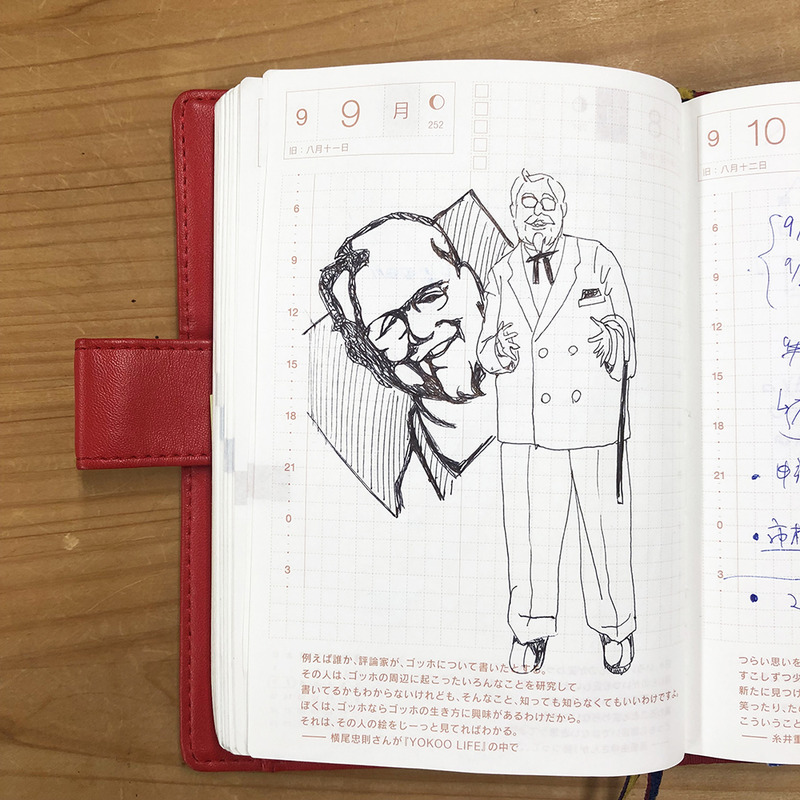 9 9 月
252
旧：八月十一日
6
9
12
15
18
21
0
3
例えば誰か、評論家が、ゴッホについて書いたとする。
その人は、ゴッホの周辺に起こったいろんなことを研究して
書いてるかもわからないけれども、そんなこと、知っても知らなくてもいいわけですよ。
ぼくは、ゴッホならゴッホの生き方に興味があるわけだから。
それは、その人の絵をじーっと見てればわかる。
―― 横尾忠則さんが『YOKOO LIFE』の中で
9 10
旧：八月十二日
6
9
12
15
18
21
0
3
9/
9/
つらい思いを
すこしずつ少
新たに見つけ
笑ったり、た
こういうこと
―― 糸井重